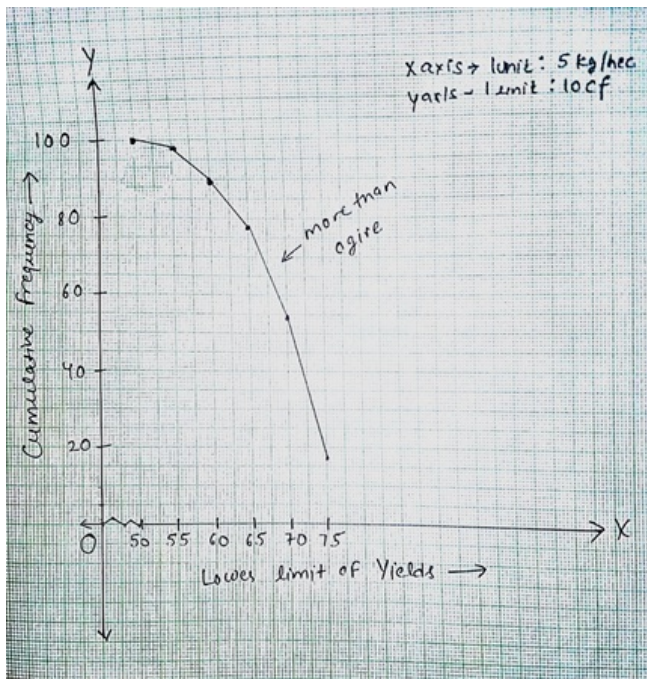 Y
x axis → 1unit : 5 kg/hec
yaxis - 1 unit : 10 cf
100
80
60
40
20
Cumulative frequency →
more than
ogive
O
50 55 60 65 70 75
X
Lower limit of Yields →